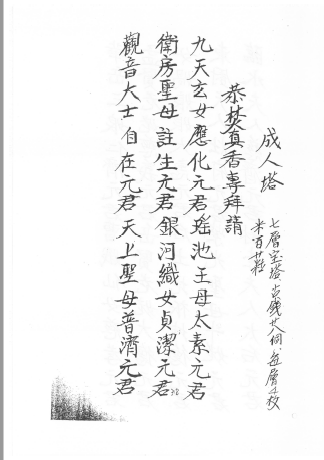 成人塔
七層宝塔、古錢廿八個、每層4枚
米百廿粒
恭焚真香專拜請
九天玄女應化元君瑤池王母太素元君
衛房聖母註生元君銀河織女貞潔元君
觀音大士自在元君天上聖母普濟元君